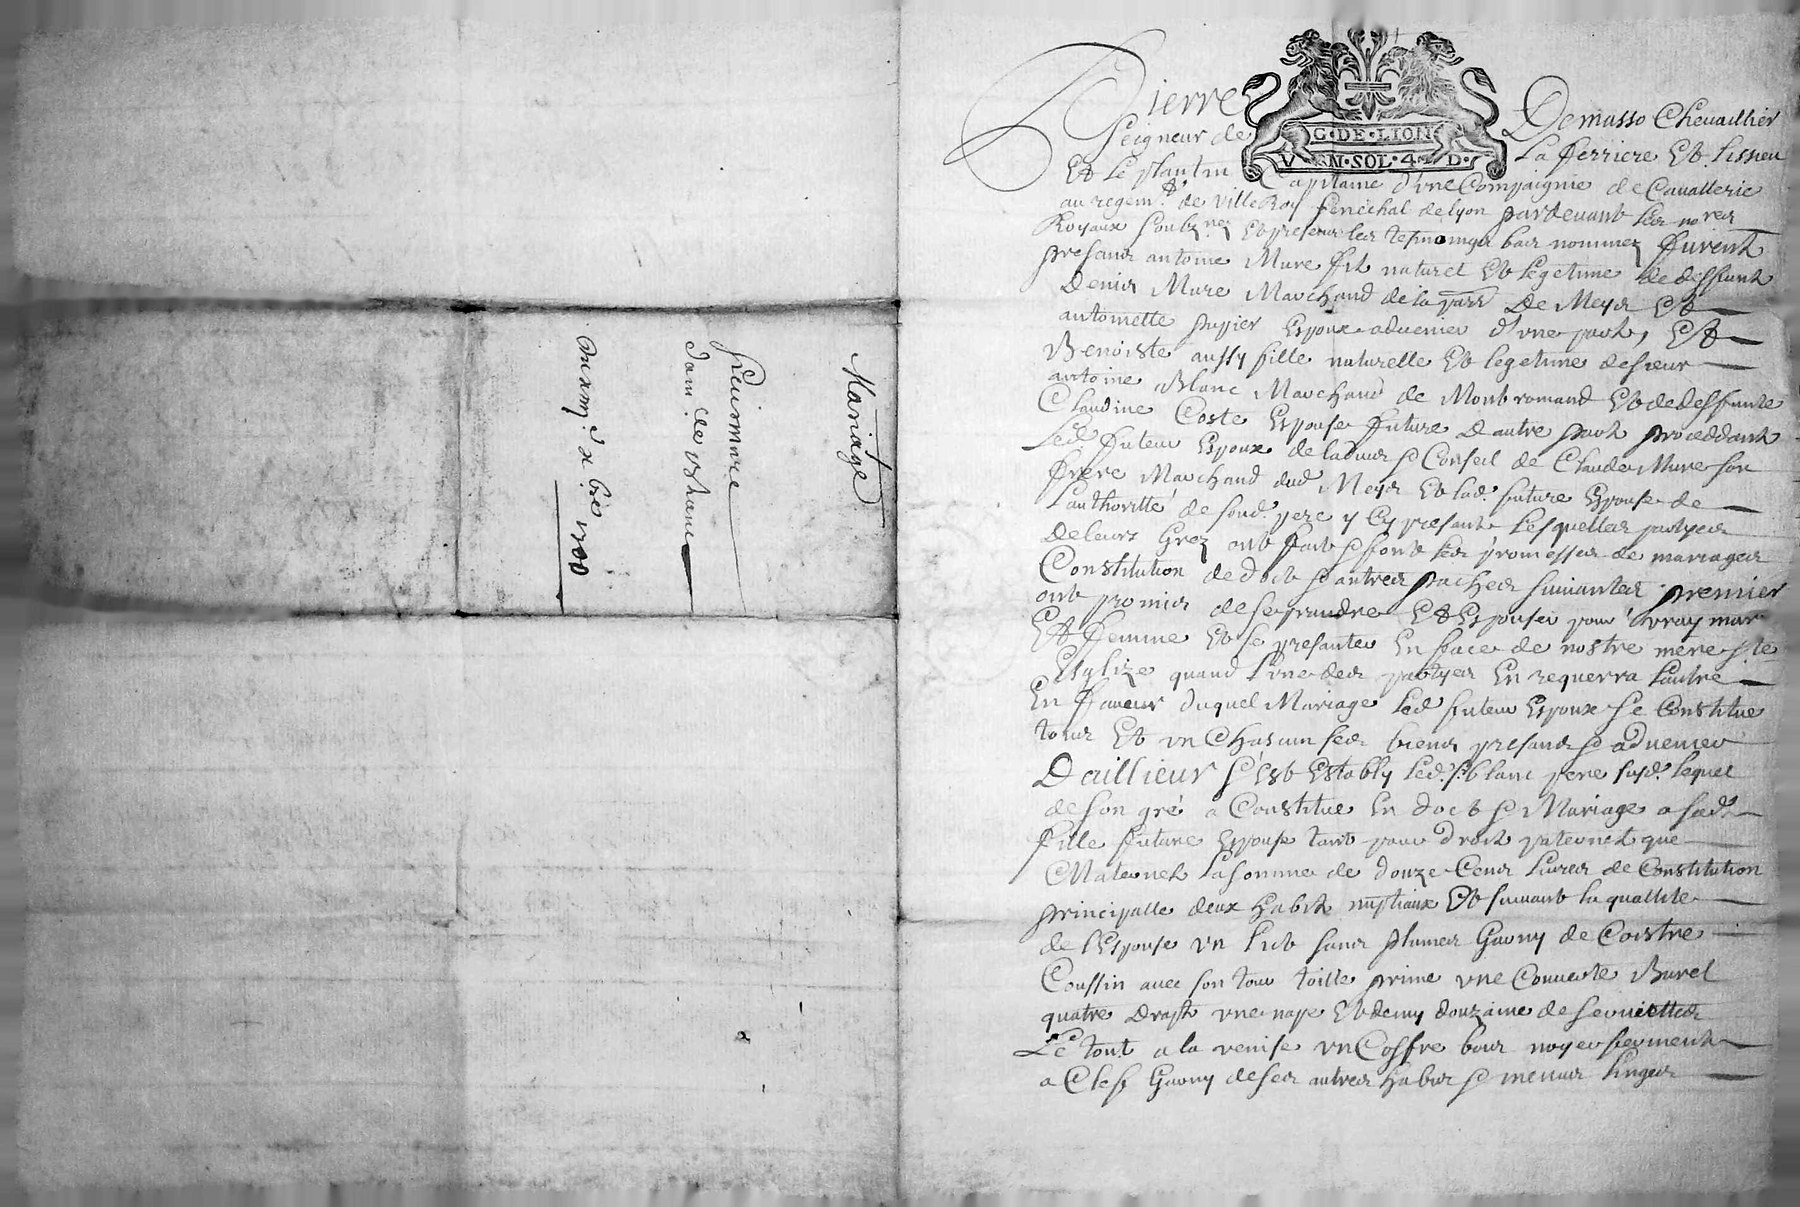 Mariage
Premiere
dam. de Blanc
du xxvj.e xbre 1700
Pierre Demasso Chevaillier
G·DE·LION
V SOL·4 D·
Seigneur de La ferriere Et Lissieu
Et Le plantin Capitaine d'vne Compaignie de Cavallerie
au regem.t de VilleRoy senechal de lyon pardevant les no.res
Royaux soubz.nez Et presens les tesmoings bas nommez furent
presans antoine Mure fils naturel Et legetime de deffunt
Denis Mure Marchand de la parr De Meys Et
antoinette pupier Espoux advenier d'vne part, Et
Benoiste aussy fille naturelle Et legetime de sieur
antoine Blanc Marchand de Montromand Et de deffunte
Claudine Coste Espouse future D'autre part proceddant
Led. futeur Espoux de l'advis & Conseil de Claude Mure son
frere Marchand dud Meys Et lad. future Espouse de
L'authoritté de sond. pere y Cy presant Lesquelles partyes
De leurs Grez ont fait & font les promesses de mariages
Constitution de doct & autres paches suivantes premier
ont promis de se prandre Et Espouser pour vray mary
Et femme Et se presanter En face de nostre mere S.te
Esglize quand L'vne des partyes En requerra L'autre
En faveur duquel Mariage Led futeur Espoux se Constitue
tous Et vn Chascun ses biens presans & advenier
Dailleur s'est Estably led. s.r blanc pere susd. lequel
de son gré a Constitue En doct & Mariage a sad.
fille future Espouse tant pour droit paternel que
Maternel La somme de douze Cens Livres de Constitution
principalle deux habits nuptiaux Et suivant la quallite
de l'Espouse vn Lict sans plumes Garny de Coistre
Coussin avec son tour toille prime vne Couverte Burel
quatre Drapt vne nape Et demy douzaine de serviettes
Le tout a la venise vn Coffre bois noyer fermant
a Clef Garny de ses autres habis & menus linges